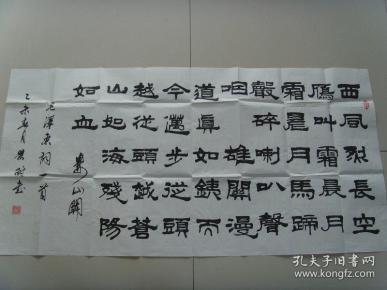 西風烈長空
鴈叫霜晨月
霜晨月馬蹄
聲碎喇叭聲
咽 雄關漫
道真如鐵而
今邁步從頭
越從頭越蒼
山如海殘陽
如血 婁山關
毛澤東詞一首
乙未
孔夫子旧书网